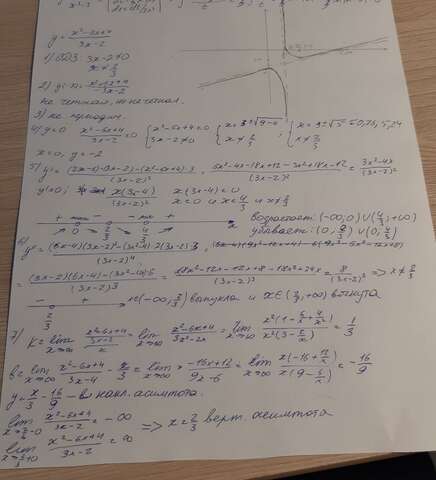 y = (x²-6x+4)/(3x-2)
1) ОДЗ: 3x-2≠0
x ≠ 2/3
2) y(-x) =
не четная, не нечетная.
3) не период.
4) y=0 (x²-6x+4)/(3x-2)=0 { x²-6x+4=0 3x-2≠0 { x = 3±√(9-4) x ≠ 2/3 ; { x = 3±√5 ≈ 0,76; 5,24 x ≠ 2/3
x=0, y=-2
5) y' = ((2x-6)(3x-2)-(x²-6x+4)·3)/(3x-2)² = (6x²-4x-18x+12-3x²+18x-12)/(3x-2)² = (3x²-4x)/(3x-2)²
y'=0; x(3x-4)/(3x-2)² x(3x-4)=0 x=0 и x=4/3 и x≠2/3
+ max - - min + x
0 2/3 4/3
возрастает: (-∞;0)∪(4/3;+∞)
убывает: (0; 2/3)∪(0;4/3)
6) y'' = ((6x-4)(3x-2)²-(3x²-4x)·2(3x-2)·3)/(3x-2)⁴ =
= ((3x-2)(6x-4)-(3x²-4x)·6)/(3x-2)³ = (18x²-12x-12x+8-18x²+24x)/(3x-2)³ = 8/(3x-2)³ => x ≠ 2/3
- + x∈(-∞; 2/3) выпукла и x∈(2/3;+∞) вогнута
2/3
7) K = lim x→∞ ((x²-6x+4)/(3x-2))/x = lim x→∞ (x²-6x+4)/(3x²-2x) = lim x→∞ x²(1-6/x+4/x²)/x²(3-2/x) = 1/3
b = lim x→∞ (x²-6x+4)/(3x-4) - x/3 = lim x→∞ (-16x+12)/(9x-6) = lim x→∞ x(-16+12/x)/x(9-6/x) = -16/9
y = x/3 - 16/9 - накл. асимптота.
lim x→2/3-0 (x²-6x+4)/(3x-2) = -∞ => x = 2/3 верт. асимптота
lim x→2/3+0 (x²-6x+4)/(3x-2) = ∞